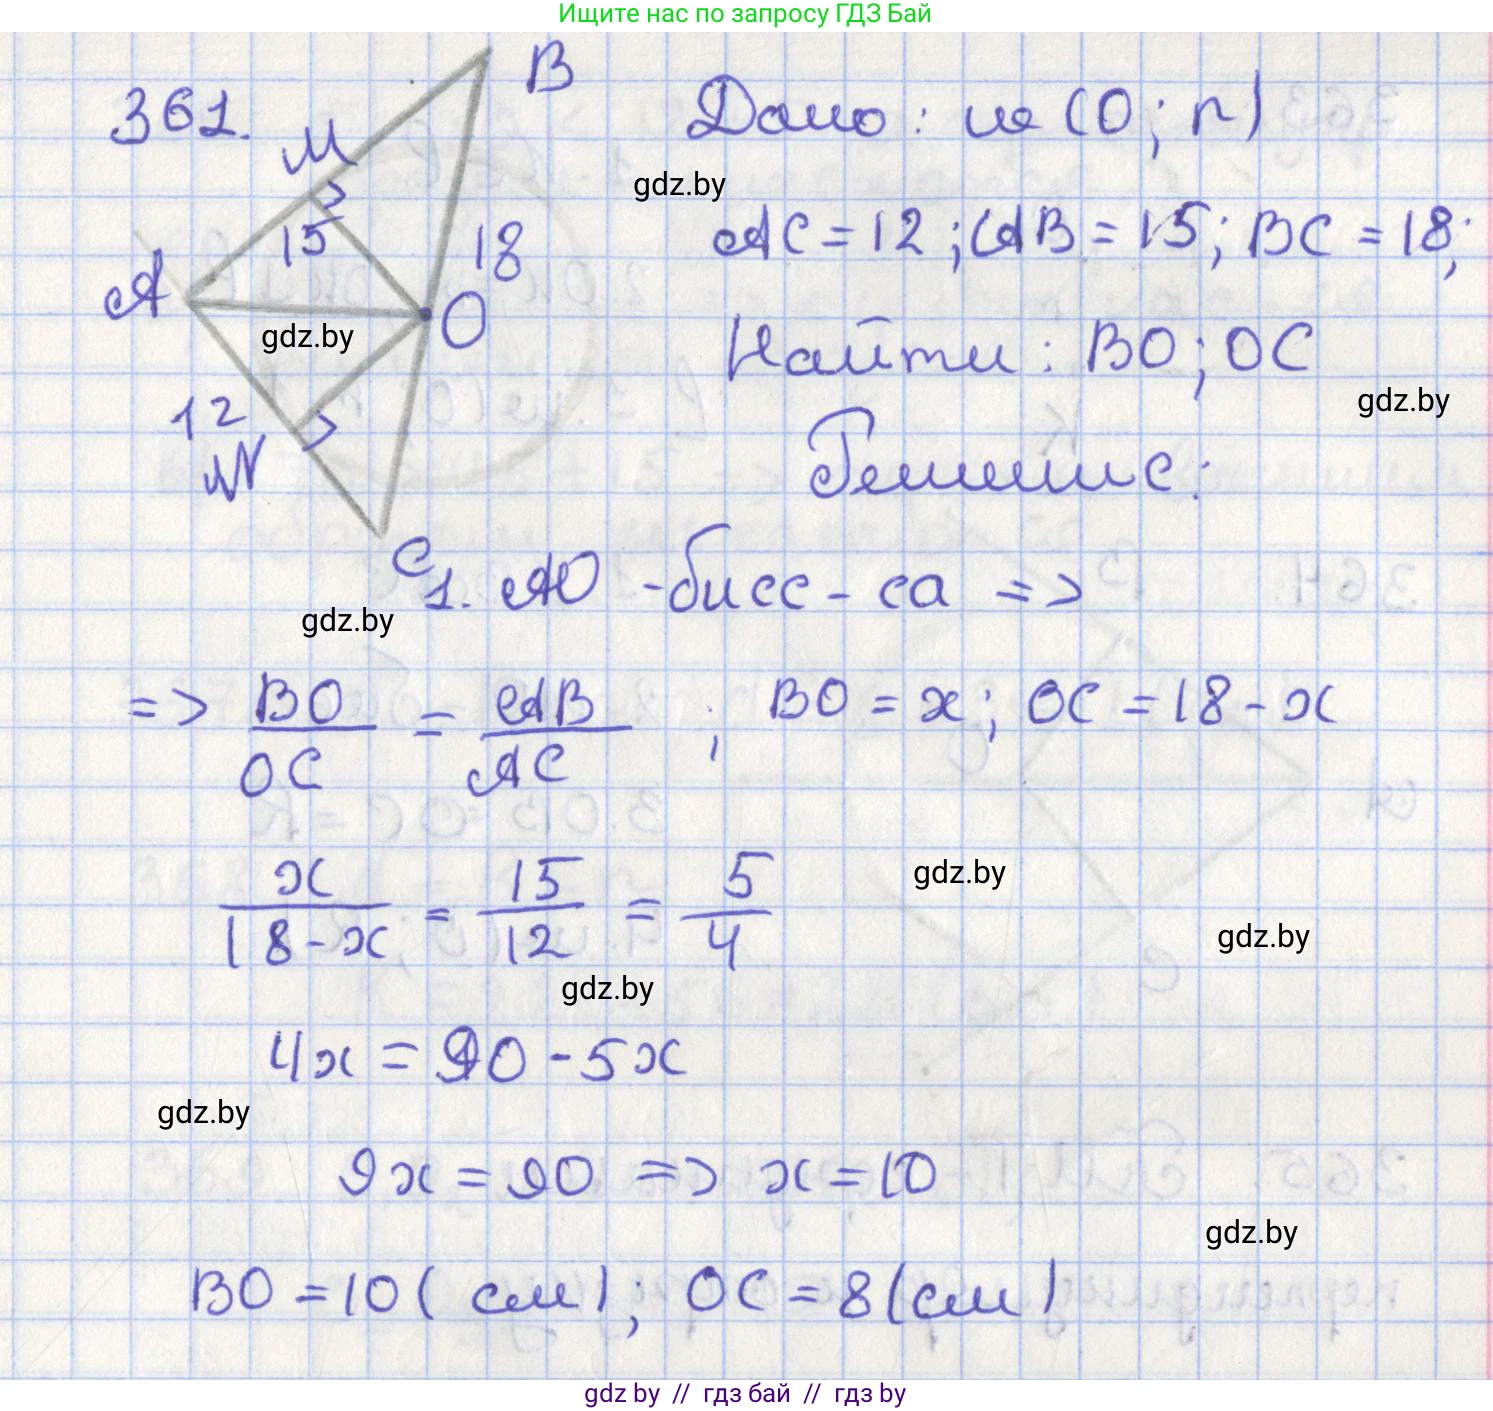 Ищите нас по запросу ГДЗ Бай
361.
B
M
15
18
A
O
12
N
C
Дано: ω (O; r)
gdz.by
AC = 12; AB = 15; BC = 18;
Найти: BO; OC
gdz.by
gdz.by
Решение:
1. AO - бисс-са =>
gdz.by
=> BO/OC = AB/AC ; BO = x; OC = 18 - x
x/(18-x) = 15/12 = 5/4
gdz.by
gdz.by
gdz.by
4x = 90 - 5x
gdz.by
9x = 90 => x = 10
gdz.by
BO = 10 (см); OC = 8 (см)
gdz by // гдз бай // гдз by